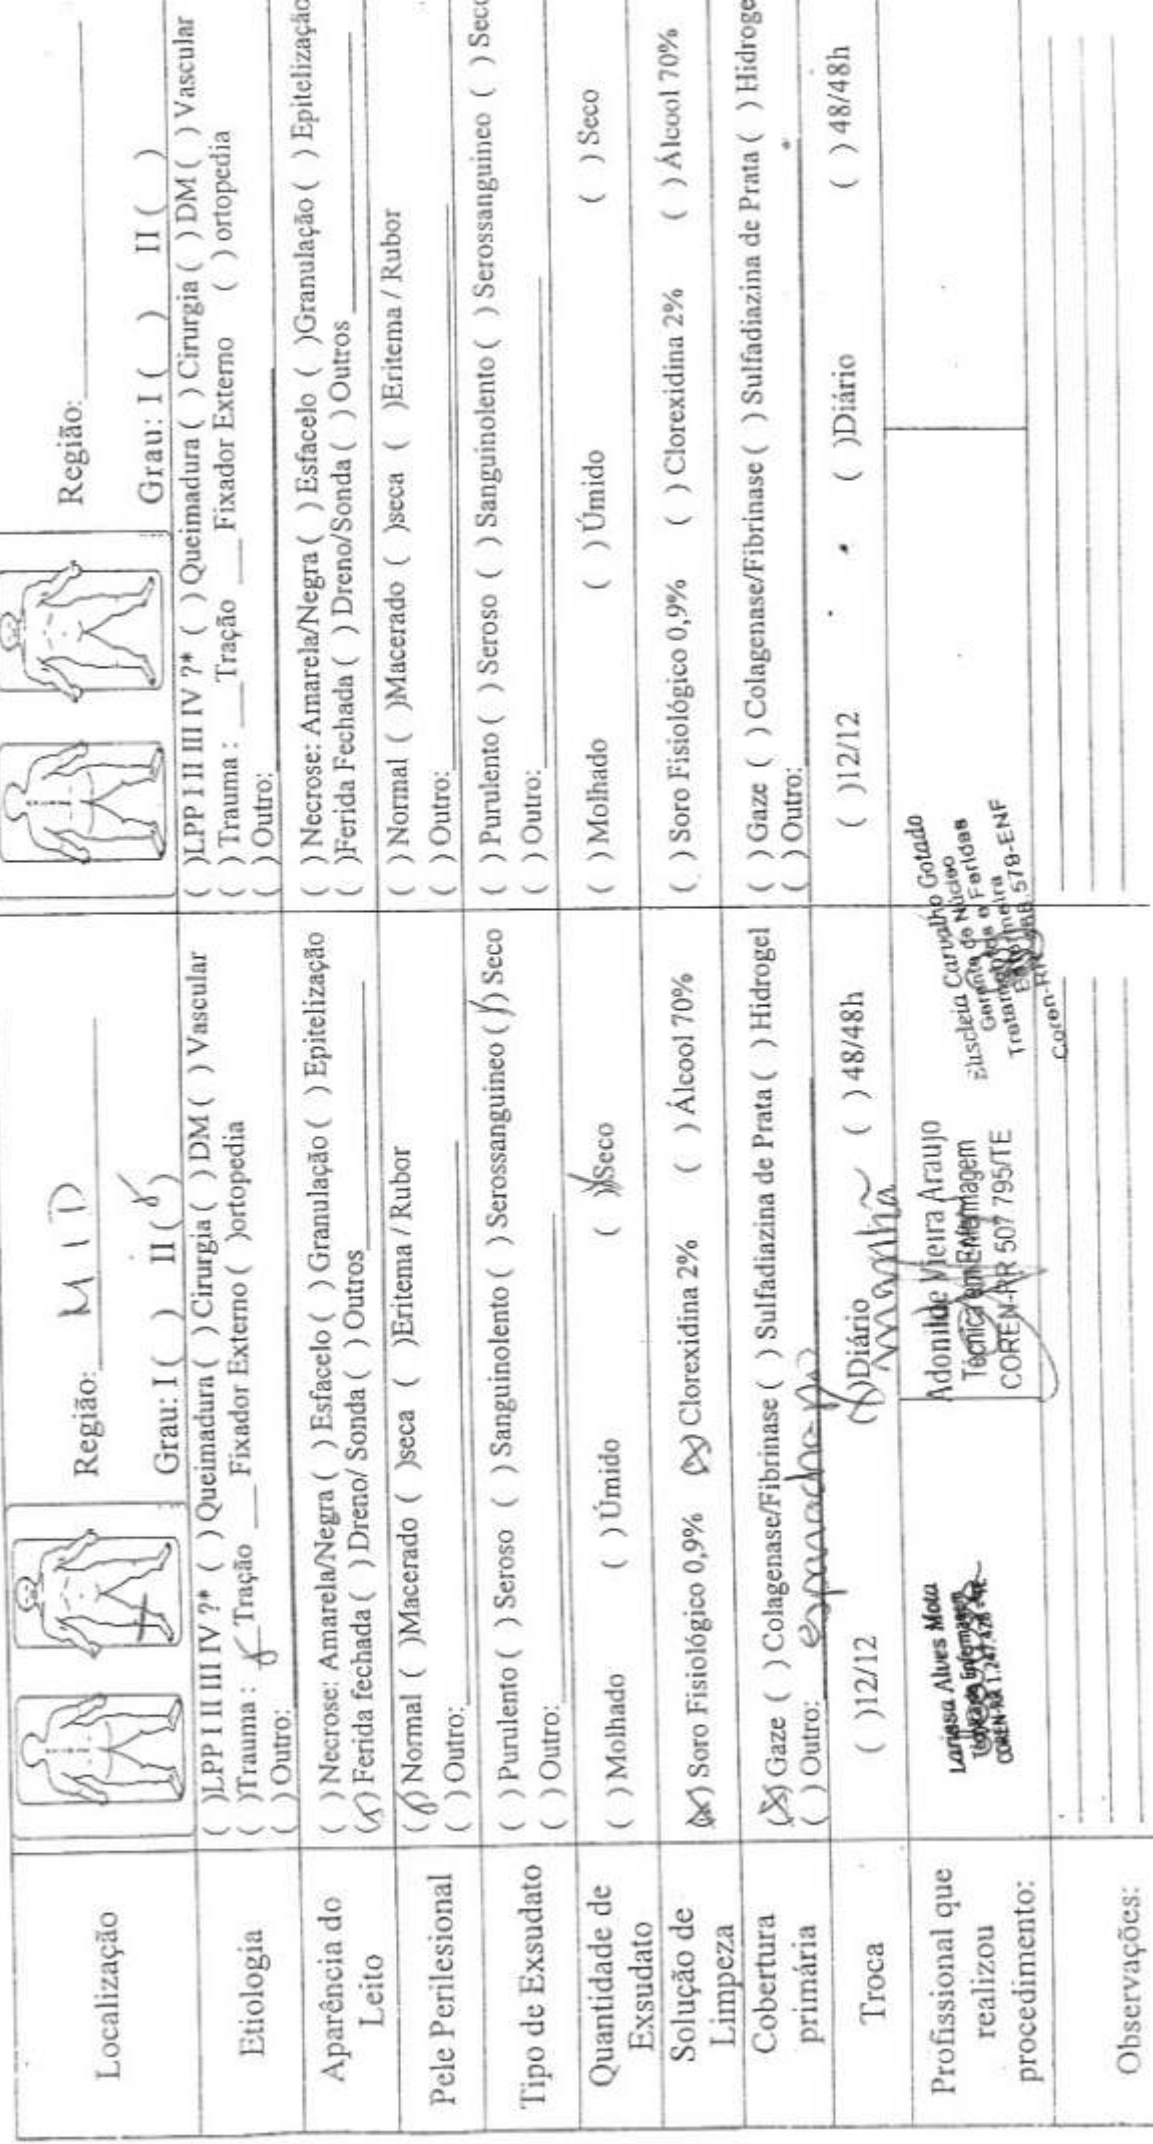 Localização
Região: M I D
Grau: I ( ) II (X)
Região:
Grau: I ( ) II ( )
Etiologia
( )LPP I II III IV ?* ( ) Queimadura ( ) Cirurgia ( ) DM ( ) Vascular
( )Trauma : X Tração ___ Fixador Externo ( )ortopedia
( ) Outro:
( )LPP I II III IV ?* ( ) Queimadura ( ) Cirurgia ( ) DM ( ) Vascular
( ) Trauma : ___Tração ___Fixador Externo ( ) ortopedia
( ) Outro:
Aparência do
Leito
( ) Necrose: Amarela/Negra ( ) Esfacelo ( ) Granulação ( ) Epitelização
(X) Ferida fechada ( ) Dreno/ Sonda ( ) Outros
( ) Necrose: Amarela/Negra ( ) Esfacelo ( )Granulação ( ) Epitelização
( )Ferida Fechada ( ) Dreno/Sonda ( ) Outros
Pele Perilesional
(X) Normal ( )Macerado ( )seca ( )Eritema / Rubor
( ) Outro:
( ) Normal ( )Macerado ( )seca ( )Eritema / Rubor
( ) Outro:
Tipo de Exsudato
( ) Purulento ( ) Seroso ( ) Sanguinolento ( ) Serossanguineo (X) Seco
( ) Outro:
( ) Purulento ( ) Seroso ( ) Sanguinolento ( ) Serossanguineo ( ) Seco
( ) Outro:
Quantidade de
Exsudato
( ) Molhado ( ) Úmido (X)Seco
( ) Molhado ( ) Úmido ( ) Seco
Solução de
Limpeza
(X) Soro Fisiológico 0,9% (X) Clorexidina 2% ( ) Álcool 70%
( ) Soro Fisiológico 0,9% ( ) Clorexidina 2% ( ) Álcool 70%
Cobertura
primária
(X) Gaze ( ) Colagenase/Fibrinase ( ) Sulfadiazina de Prata ( ) Hidrogel
( ) Outro: esparadrapo
( ) Gaze ( ) Colagenase/Fibrinase ( ) Sulfadiazina de Prata ( ) Hidroge
( ) Outro:
Troca
( )12/12 (X)Diário ( ) 48/48h
manhã
( )12/12 ( )Diário ( ) 48/48h
Profissional que
realizou
procedimento:
Larissa Alves Mota
Técnica em Enfermagem
COREN-RR
Adonilde Vieira Araujo
Técnica em Enfermagem
COREN-RR 507 795/TE
Carvalho Gotado
Gerente do Núcleo
Feridas
Enfermeira
Coren-RR 579-ENF
Observações: